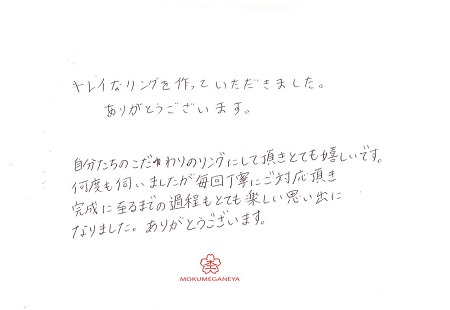 キレイなリングを作っていただきました。
ありがとうございます。
自分たちのこだわりのリングにして頂きとても嬉しいです。
何度も伺いましたが毎回丁寧にご対応頂き
完成に至るまでの過程もとても楽しい思い出に
なりました。ありがとうございます。
MOKUMEGANEYA